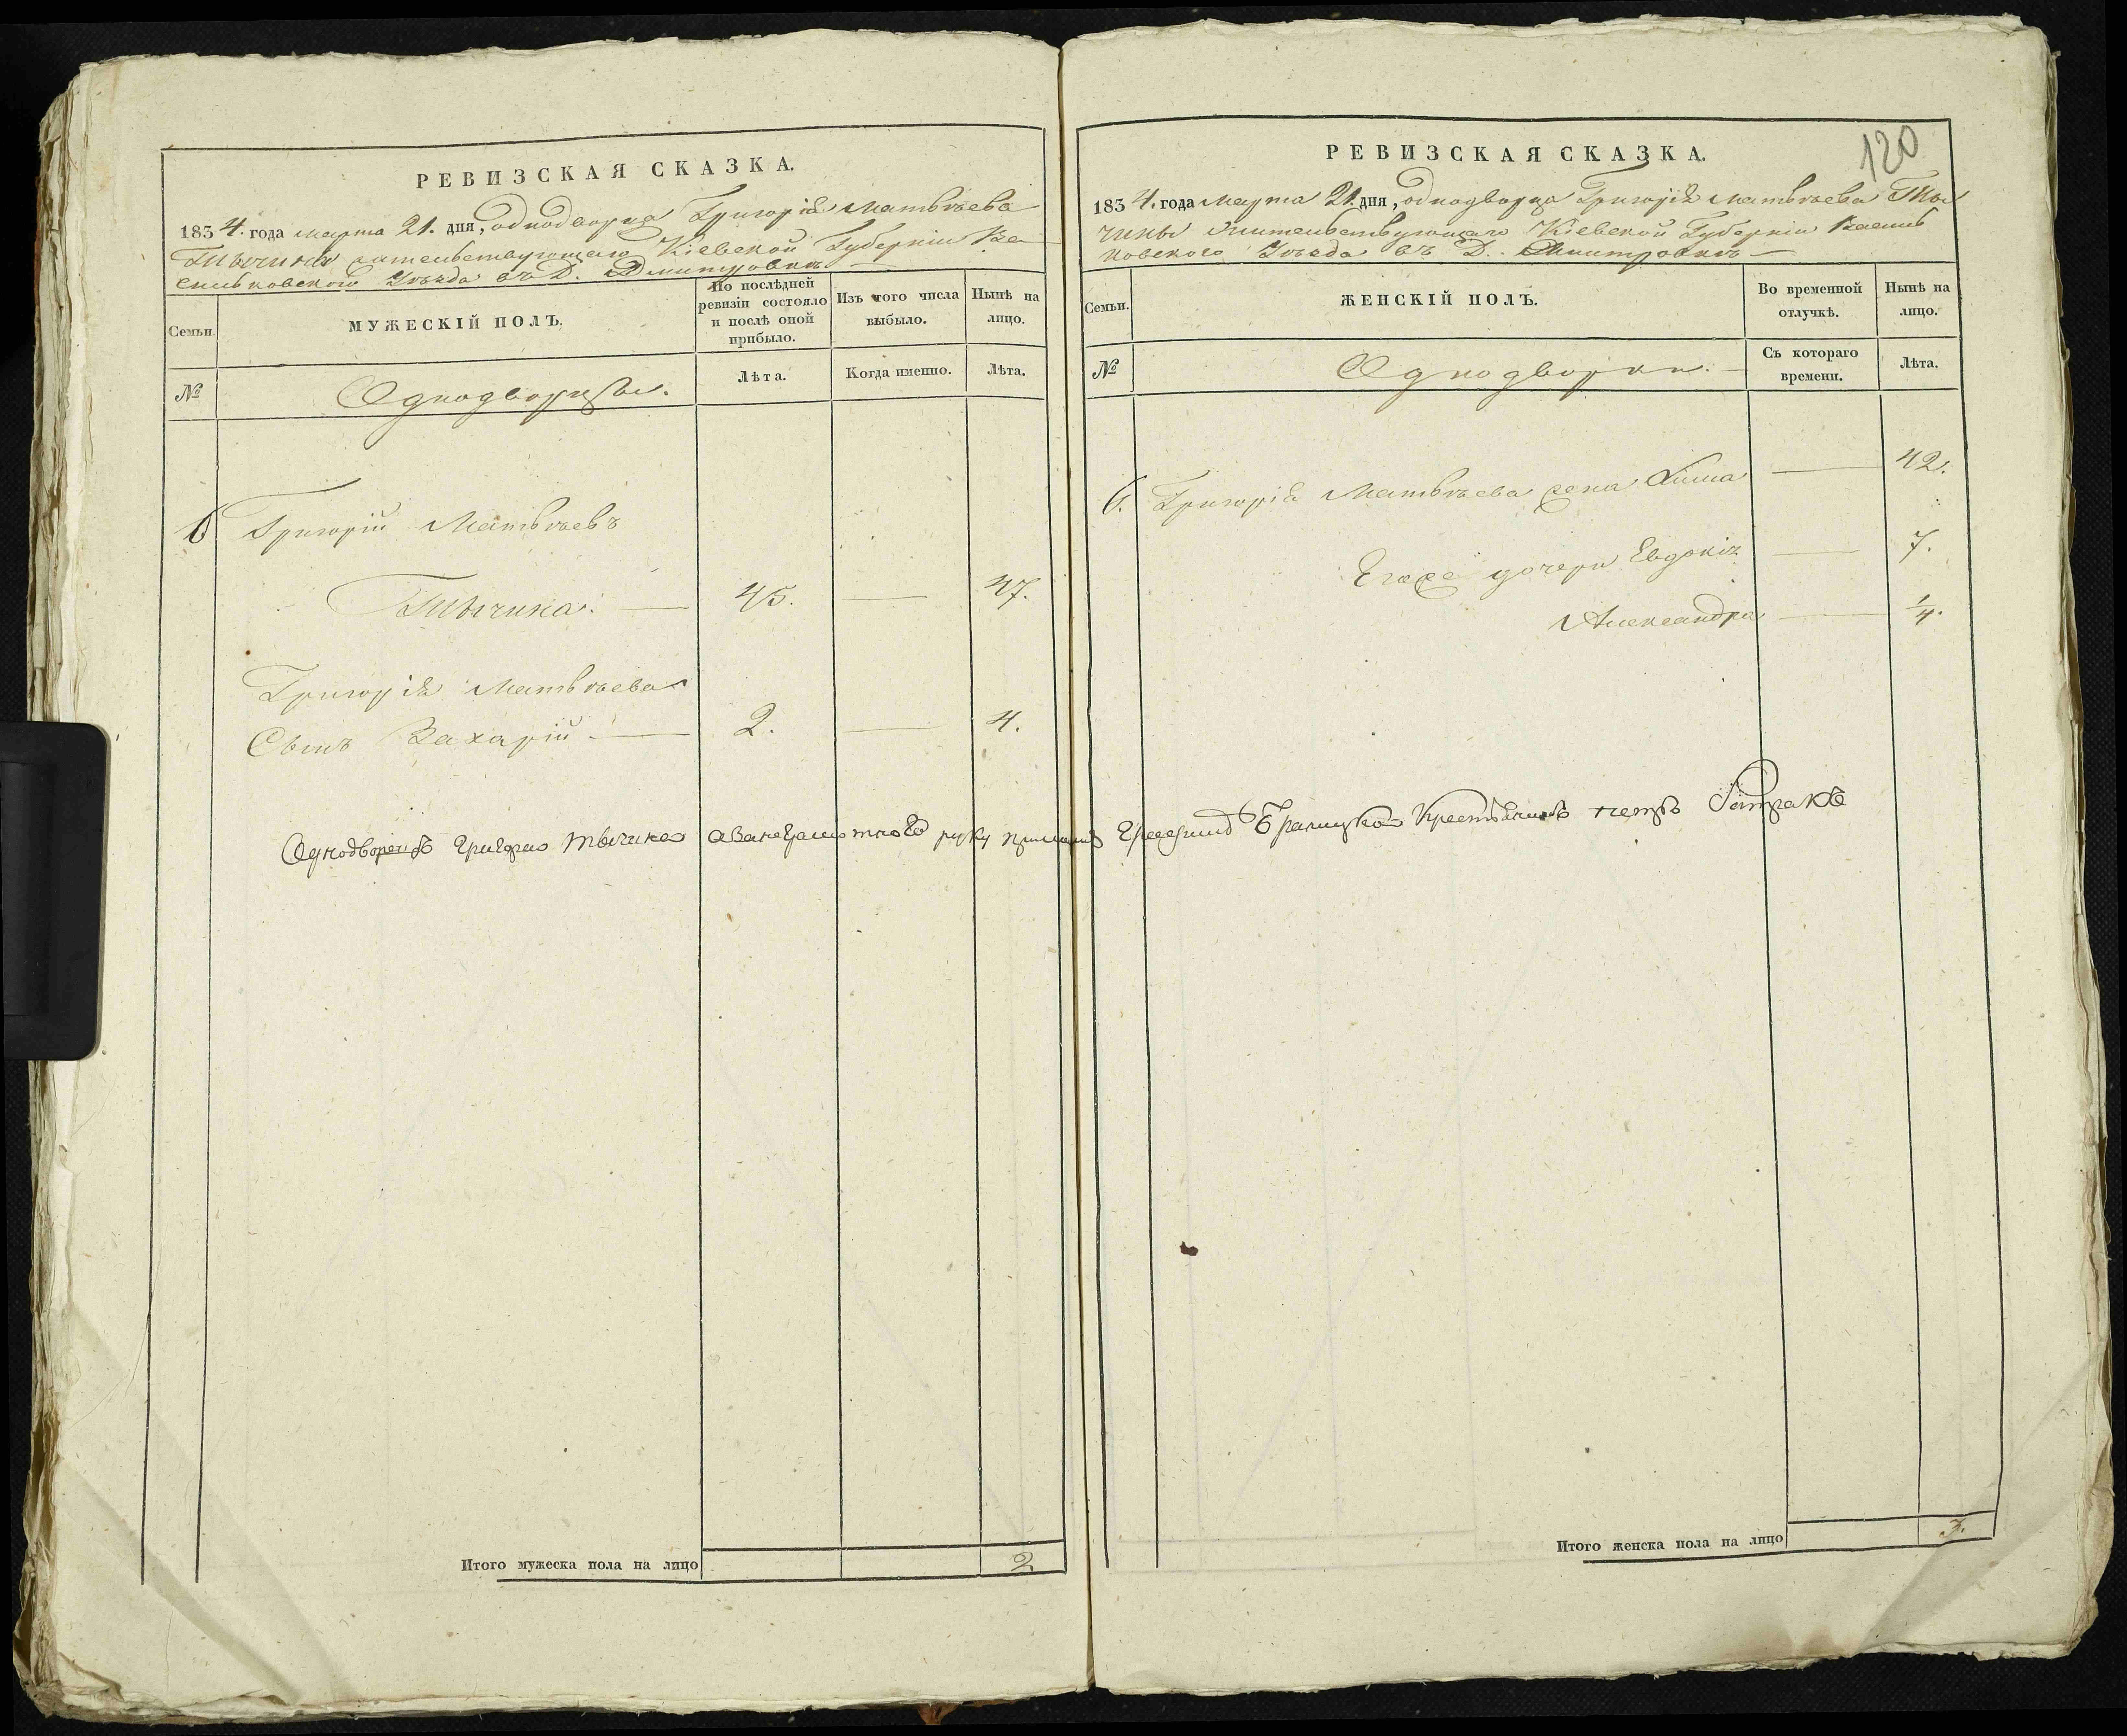 РЕВИЗСКАЯ СКАЗКА.
1834. года марта 21. дня, однодворца Григорія Матвѣева
Тычины жительствующаго Кіевской Губерніи Ва-
сильковского Уѣзда въ Д. Дмитровкѣ
Семьи.
МУЖЕСКІЙ ПОЛЪ.
По послѣдней ревизіи состояло и послѣ оной прибыло.
Изъ того числа выбыло.
Нынѣ на лицо.
№
Однодворцы.
Лѣта.
Когда именно.
Лѣта.
6 Григорій Матвѣевъ
Тычина. — 45. — 47.
Григорія Матвѣева
Сынъ Захарій. — 2. — 4.
Итого мужеска пола на лицо 2.
120
РЕВИЗСКАЯ СКАЗКА.
1834. года марта 21. дня, однодворца Григорія Матвѣева Ты
чины жительствующаго Кіевской Губерніи Василь
ковского Уѣзда въ Д. Дмитровкѣ —
Семьи.
ЖЕНСКІЙ ПОЛЪ.
Во временной отлучкѣ.
Нынѣ на лицо.
№
Однодворки. —
Съ котораго времени.
Лѣта.
6. Григорія Матвѣева жена — 42.
Егоже дочери Евдокія — 7.
Александра — 1/4.
Однодворецъ Григоріа Тычина а За неграмотного руку приложилъ
Итого женска пола на лицо 3.